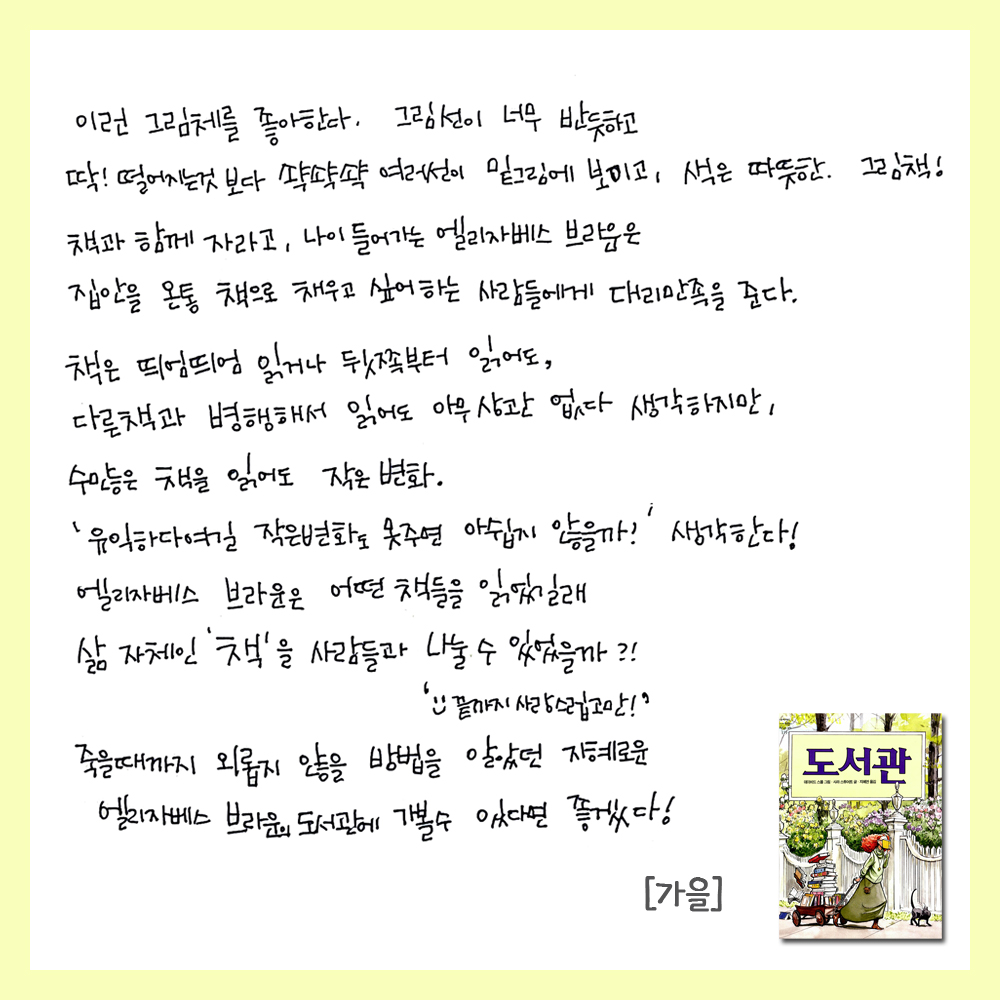 이런 그림체를 좋아한다. 그림선이 너무 반듯하고
딱! 떨어지는것 보다 샥샥샥 여러선이 밑그림에 보이고, 색은 따뜻한. 그림책!
책과 함께 자라고, 나이들어가는 엘리자베스 브라운은
집안을 온통 책으로 채우고 싶어하는 사람들에게 대리만족을 준다.
책은 띄엄띄엄 읽거나 뒷쪽부터 읽어도,
다른책과 병행해서 읽어도 아무상관 없다 생각하지만,
수많은 책을 읽어도 작은 변화.
'유익하다여길 작은변화도 못주면 아쉽지 않을까?' 생각한다!
엘리자베스 브라운은 어떤 책들을 읽었길래
삶 자체인 '책'을 사람들과 나눌 수 있었을까?!
'끝까지 사랑스럽고만!'
죽을때까지 외롭지 않을 방법을 알았던 지혜로운
엘리자베스 브라운의 도서관에 가볼수 있다면 좋겠다!
[가을]
도서관
데이비드 스몰 그림 · 사라 스튜어트 글 · 지혜연 옮김